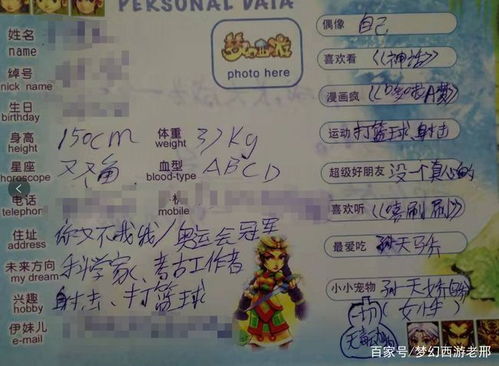 PERSONAL DATA
姓名
name
绰号
nick name
生日
birthday
身高 150cm 体重 37Kg
height weight
星座 又又鱼 血型 ABCD
horoscope blood-type
电话
telephone
mobile
住址 你又不哦我/奥运会冠军
address
未来方向 科学家、考古工作者
my dream
兴趣 射击、打篮球
hobby
伊妹儿
e-mail
梦幻西游
photo here
偶像 自己
喜欢看 《神话》
漫画疯 《哆啦A梦》
运动 打篮球、射击
超级好朋友 没一个真心的
喜欢听 《嘻刷刷》
最爱吃
小小宠物
一切(女生)
百家号/梦幻西游老邢